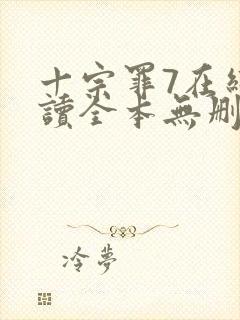 十宗罪7在
讀全本無刪
冷夢